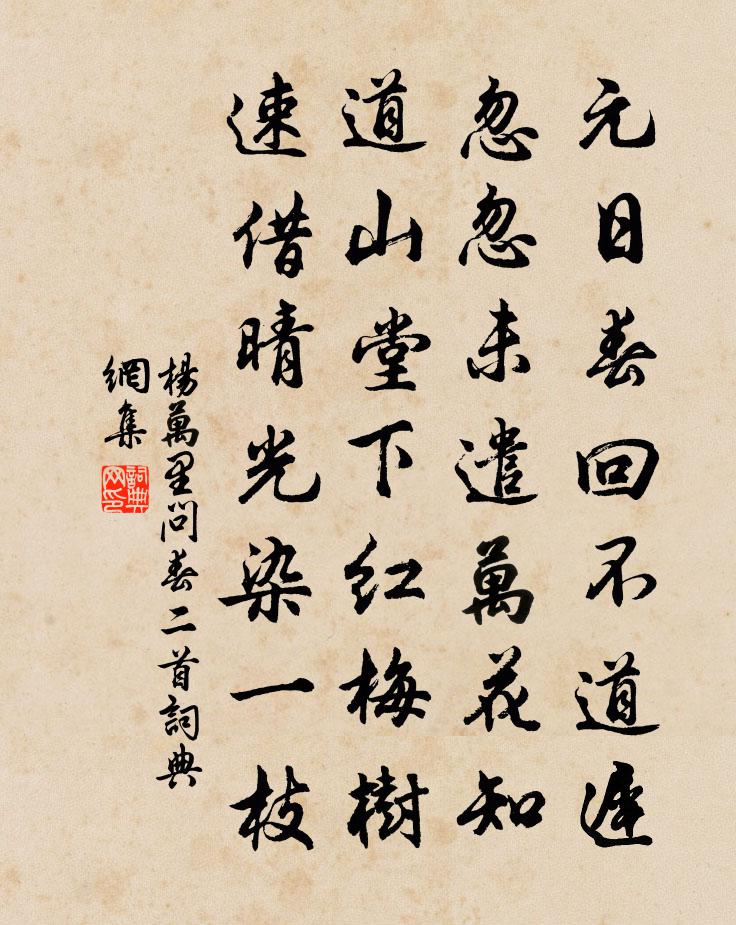 元日春回不道遲
忽忽未遣萬花知
道山堂下紅梅樹
速借晴光染一枝
楊萬里問春二首詞典
網集
詞典
网印